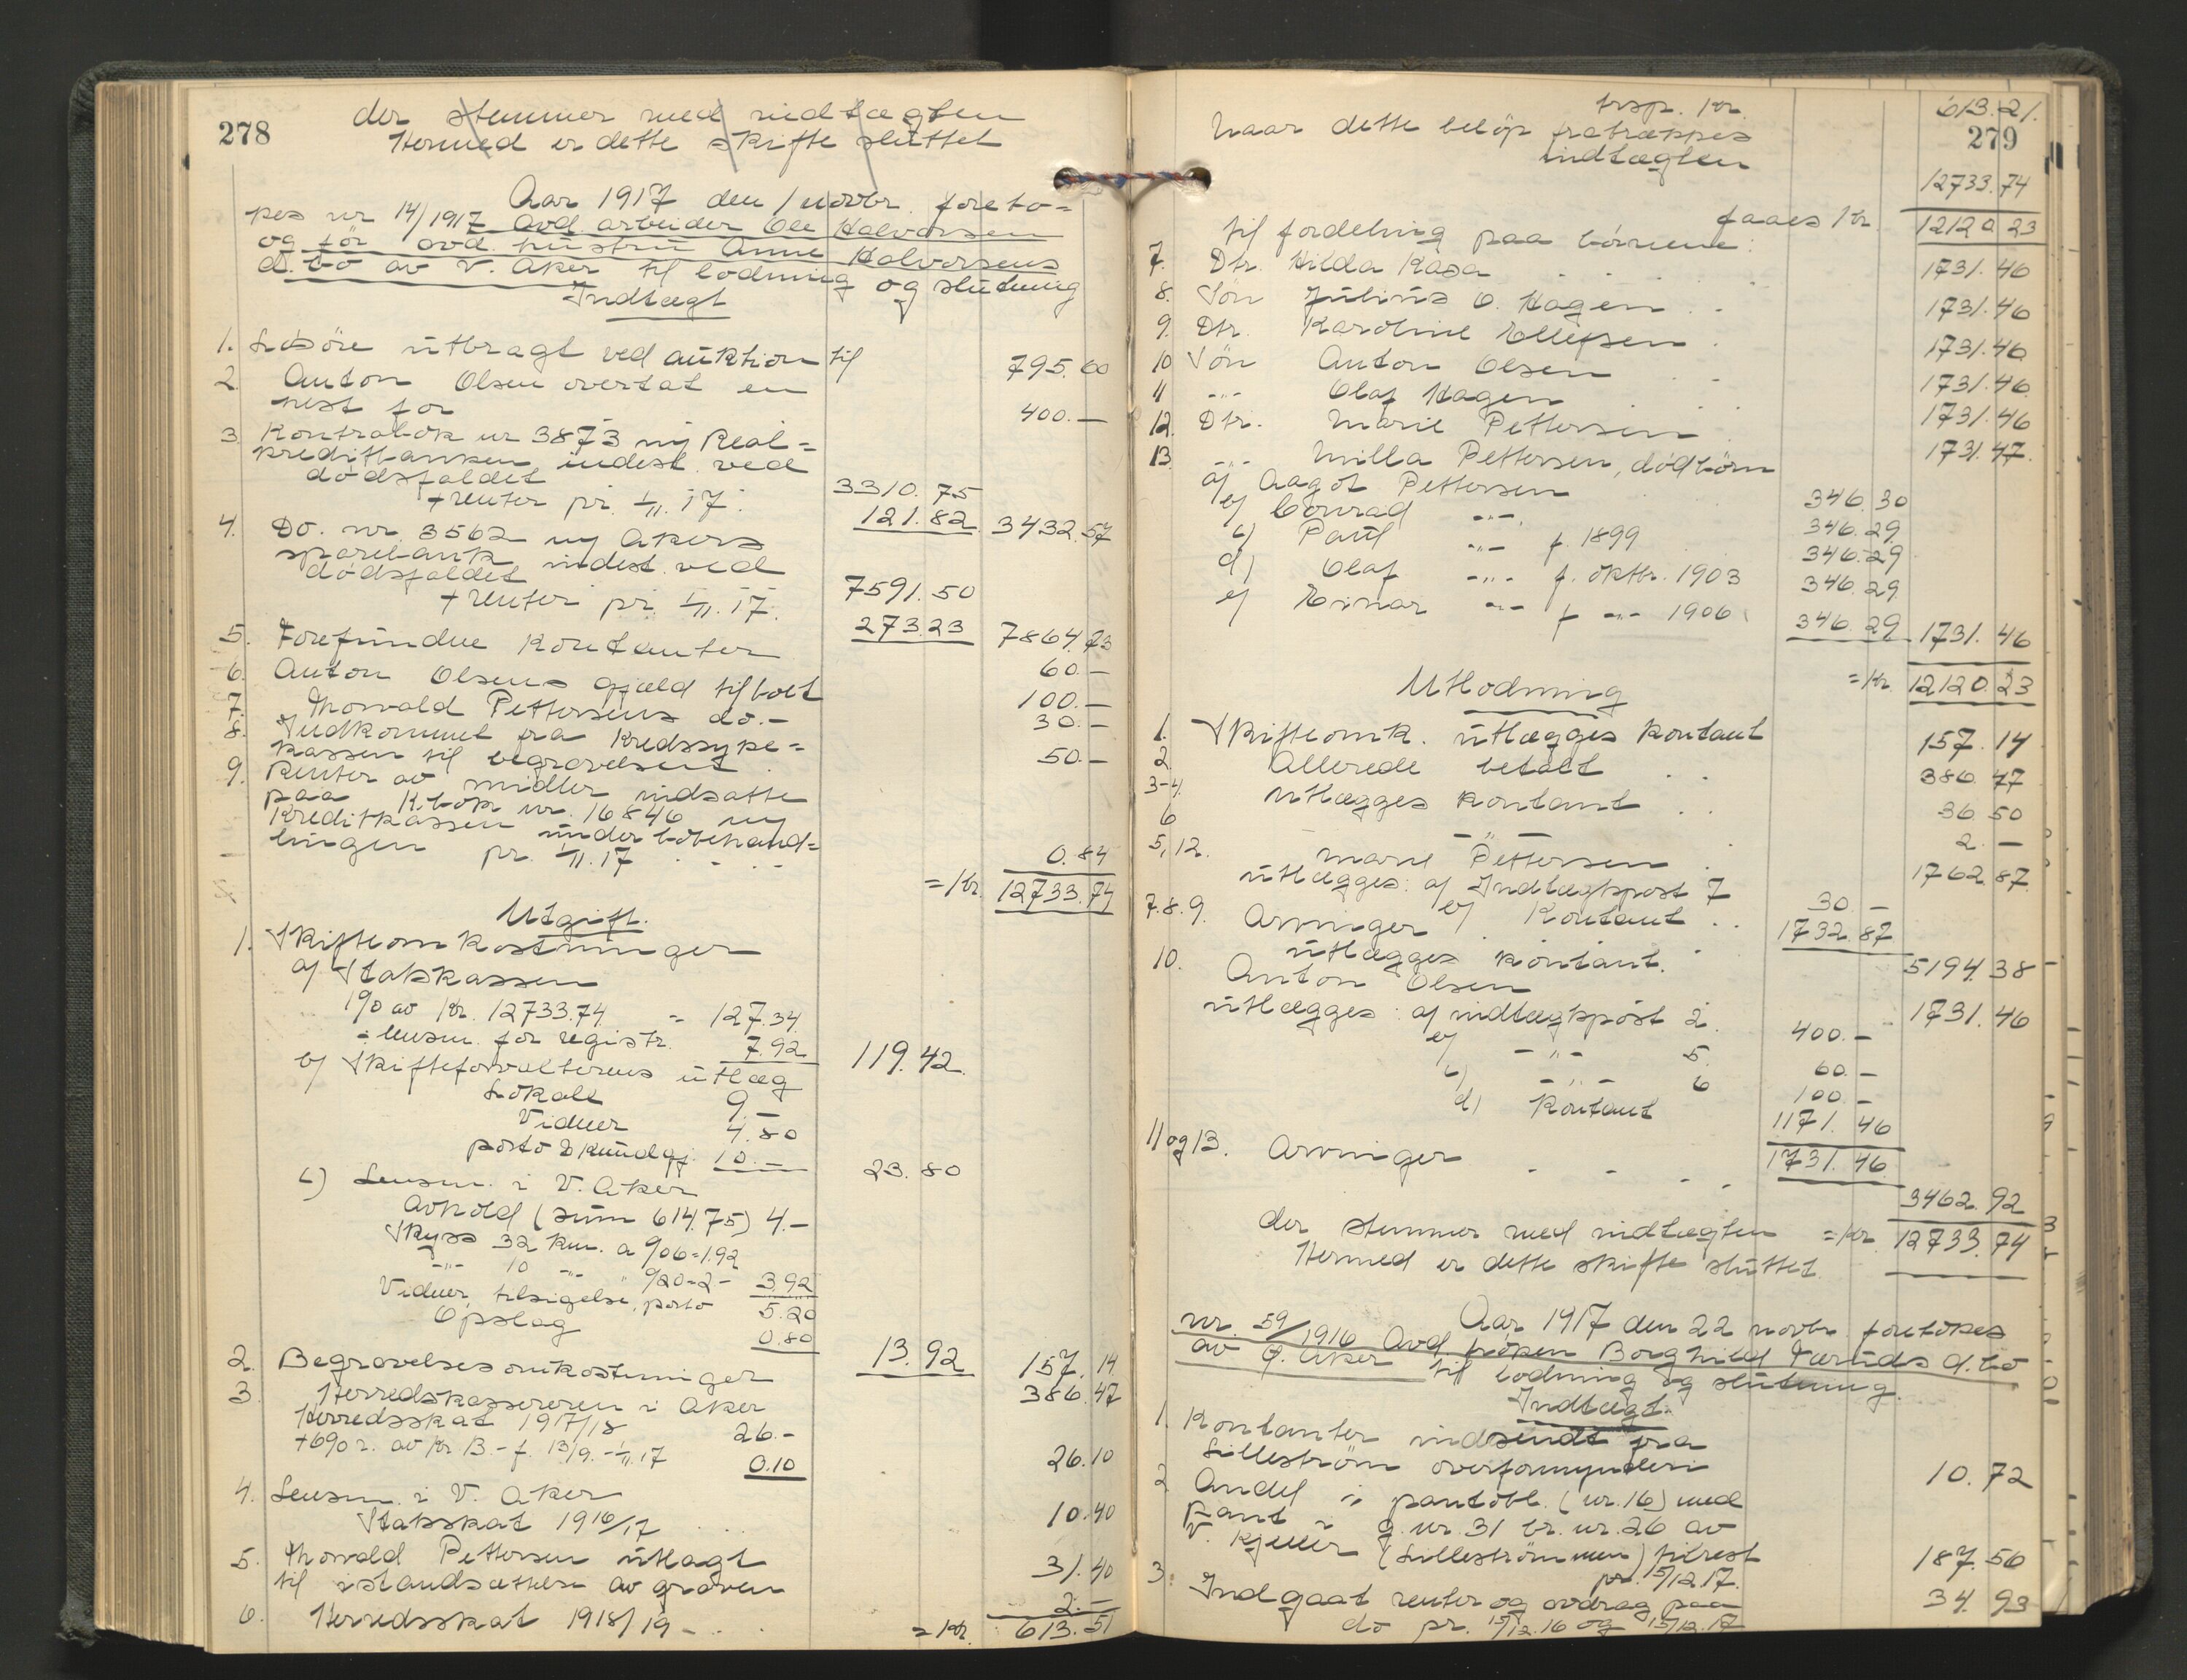 278
der stemmer med indtægten
Hermed er dette skifte sluttet
Aar 1917 den 1 novbr. foreto=
pes nr 14/1917 avd. arbeider Ole Halvorsen
og før avd. hustru Anne Halvorsens
d.bo av V. Aker til lodning og slutning
Indtægt
1. Løsøre utbragt ved auktion til 795.60
2. Anton Olsen overtat en
hest for 400.—
3. Kontrabok nr 3873 i Real=
kreditbanken indest. ved
dødsfaldet 3310.75
+ renter pr. 1/11.17. 121.82 3432.57
4. Do. nr. 3562 i Akers
sparebank indest. ved
dødsfaldet 7591.50
+ renter pr. 1/11.17. 273.23 7864.73
5. Forefundne kontanter 60.—
6. Anton Olsens gjæld til boet 100.—
7. Thorvald Pettersens do.— 30.—
8. Indkommet fra Kredssyke=
kassen til begravelsen 50.—
9. Renter av midler indsatte
paa K.bok nr. 16846 i
Kreditkassen under bobehand=
lingen pr. 1/11.17 0.84
= Kr. 12733.74
Utgift.
1. Skifteomkostninger
a) Statskassen
1% av Kr. 12733.74 = 127.34
÷ lensm. for registr. 7.92 119.42
b) Skifteforvalterens utlæg
Lokale 9.—
Vidner 4.80
porto & kundgj. 10.— 23.80
c) Lensm. i V. Aker
Avhold (sum 614.75) 4.—
Skyss 32 km. a 0/06 = 1.92
—"— 10 —"— " 0/20 = 2.— 3.92
Vidner, tilsigelse, porto 5.20
Opslag 0.80 13.92 157.14
2. Begravelsesomkostninger 386.47
3. Herredskassereren i Aker
Herredsskat 1917/18 26.—
+ 6% r. av Kr 13.— f. 13/9.—1/11.17 0.10 26.10
4. Lensm. i V. Aker
Statsskat 1916/17 10.40
5. Thorvald Pettersen utlagt
til istandsættelse av graven 31.40
6. Herredsskat 1918/19 2.—
= Kr. 613.51
279
trsp. Kr. 613.21.
Naar dette beløp fratrækkes
indtægten 12733.74
faaes Kr. 12120.23
til fordeling paa børnene:
7. Dtr. Hilda Kasa 1731.46
8. Søn Julius O. Hagen 1731.46
9. Dtr. Karoline Ellefsen 1731.46
10 Søn Anton Olsen 1731.46
11 —"— Olaf Hagen 1731.46
12. Dtr. Marie Pettersen 1731.47
13 —"— Milla Pettersen, død børn
a) Aagot Pettersen 346.30
b) Conrad —"— 346.29
c) Paul —"— f. 1899 346.29
d) Olaf —"— f. oktbr. 1903 346.29
e) Einar —"— f —"— 1906 346.29 1731.46
= Kr. 12120.23
Utlodning
1. Skifteomk. utlægges kontant 157.14
2 Allerede betalt 386.47
3-4. Utlægges kontant 36.50
6 —"— 2.—
5, 12. Marie Pettersen 1762.87
utlægges: a) Indtægtspost 7 30.—
b) Kontant 1732.87
7.8.9. Arvinger
utlægges kontant. 5194.38
10. Anton Olsen 1731.46
utlægges: a) indtægtspost 2. 400.—
b) —"— 5. 60.—
c) —"— 6 100.—
d) Kontant 1171.46
1731.46
11 og 13. Arvinger 3462.92
der stemmer med indtægten = Kr. 12733.74
Hermed er dette skifte sluttet.
Aar 1917 den 22 novbr. foretokes
nr. 59/1916 Avd. frøken Borghild d.bo
av Ø. Aker til lodning og slutning.
Indtægt.
1. Kontanter indsendt fra
Lillestrøm overformynderi 10.72
2 Andel i pantobl. (nr. 16) med
pant i g.nr. 31 br.nr. 26 av
V. Kjeller (Lillestrømmen) tilrest
pr. 15/12.17. 187.50
3. Indgaat renter og avdrag paa
do pr. 15/12.16 og 15/12.17 34.93